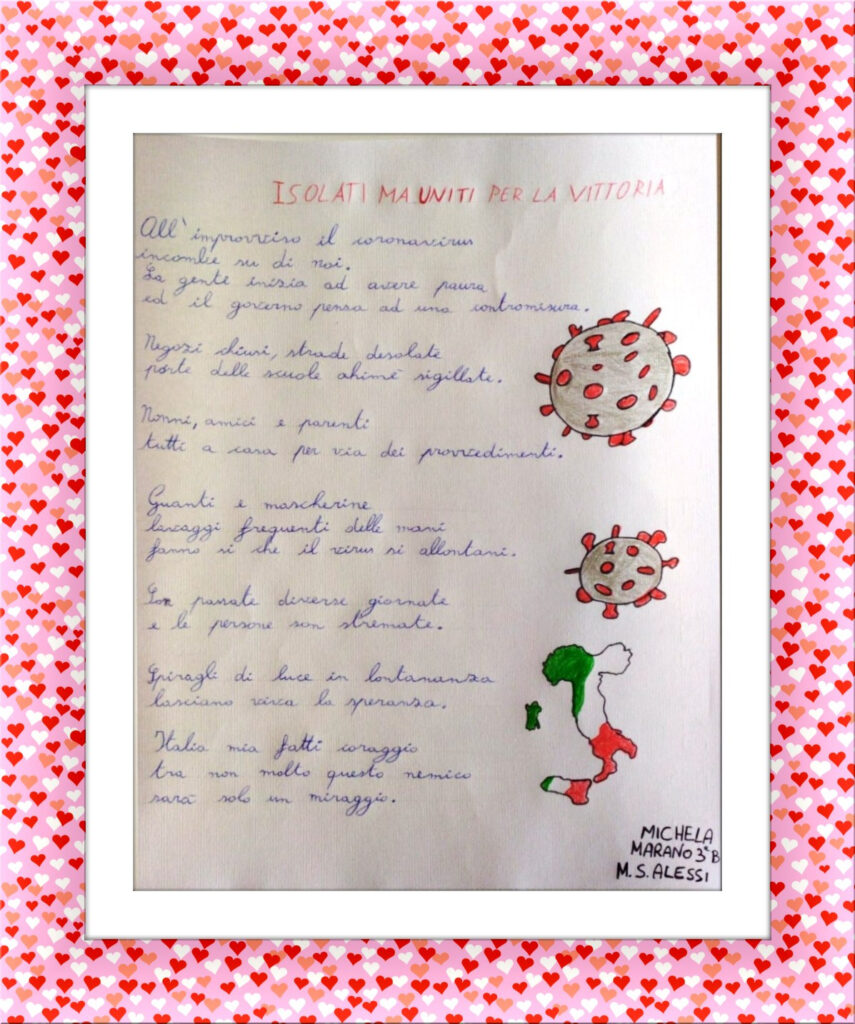 ISOLATI MA UNITI PER LA VITTORIA
All' improvviso il coronavirus
incombe su di noi.
La gente inizia ad avere paura
ed il governo pensa ad una contromisura.
Negozi chiusi, strade desolate
porte delle scuole ahimè sigillate.
Nonni, amici e parenti
tutti a casa per via dei provvedimenti.
Guanti e mascherine
lavaggi frequenti delle mani
fanno sì che il virus si allontani.
Son passate diverse giornate
e le persone son stremate.
Spiragli di luce in lontananza
lasciano viva la speranza.
Italia mia fatti coraggio
tra non molto questo nemico
sarà solo un miraggio.
MICHELA
MARANO 3ªB
M. S. ALESSI